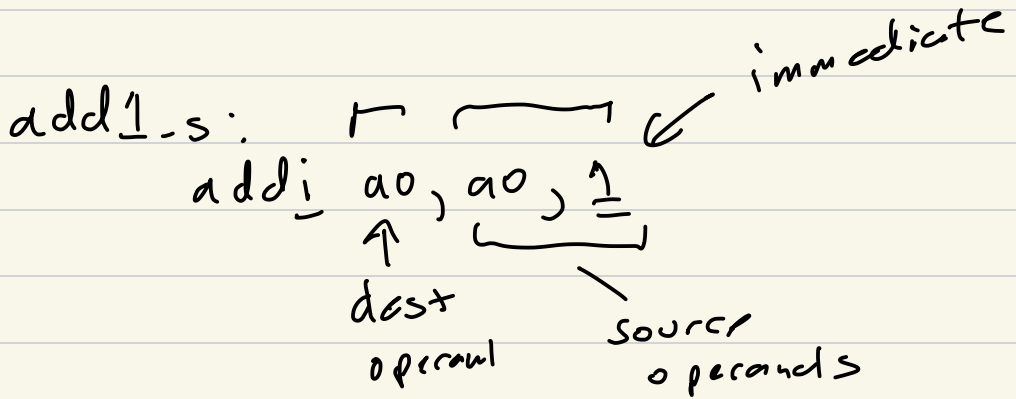 immediate
add1_s:
addi a0, a0, 1
dest
operand
source
operands